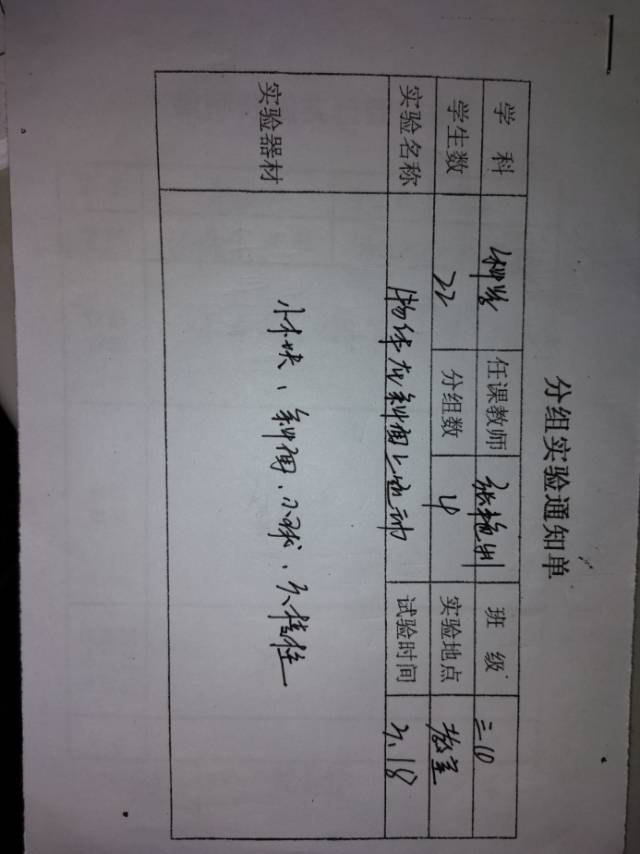 分组实验通知单
学 科 科学 任课教师 张艳 班 级 三10
学生数 22 分组数 4 实验地点 教室
实验名称 物体在斜面上运动 试验时间 3.18
实验器材 小木块、斜面、小球、六棱柱